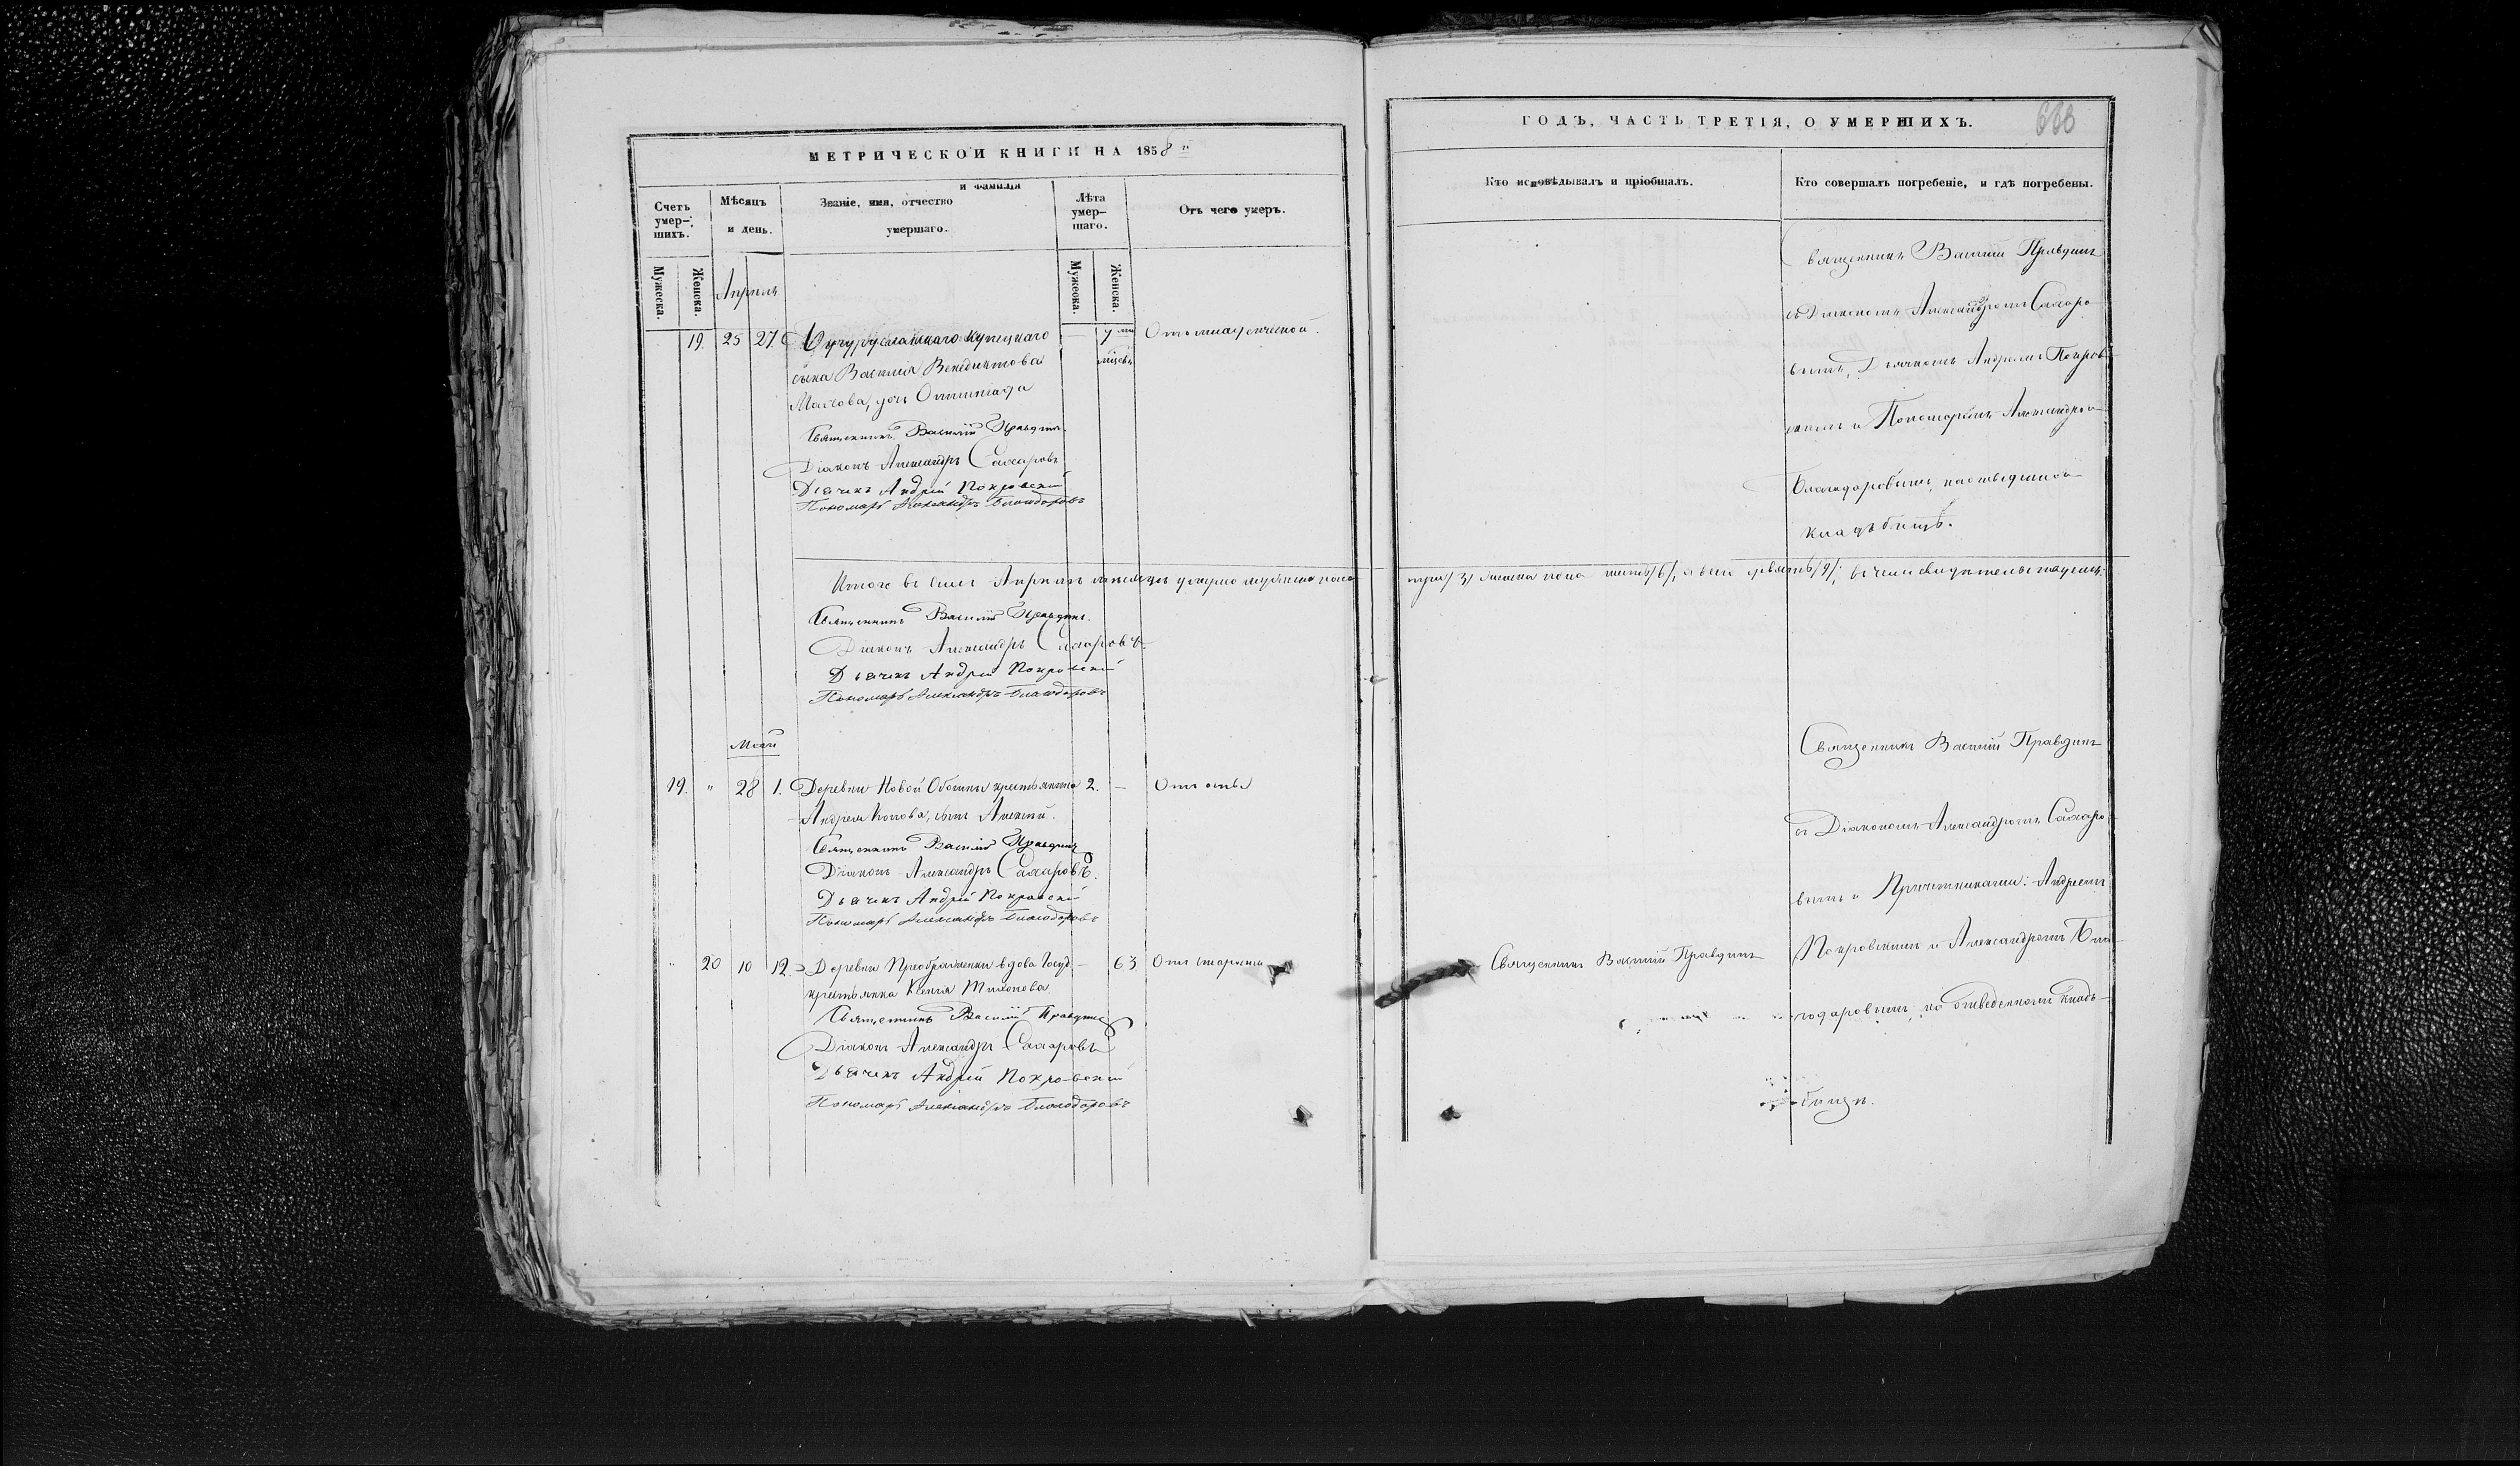 МЕТРИЧЕСКОЙ КНИГИ НА 1858й
Счетъ умер-шихъ.
Мѣсяцъ и день.
и фамилія
Званіе, имя, отчество
умершаго.
Лѣта умер-шаго.
Отъ чего умеръ.
Мужеска.
Женска.
Апрѣль
Мужеска.
Женска.
19. 25 27. Бугурусланскаго купецкаго — 7 Отъ младенческой.
сына Василія Венедиктова
дочь Олимпіада
Священникъ Василій Правдинъ.
Діаконъ Александръ Сахаровъ
Дьячекъ Андрей Покровскій
Пономарь Александръ Благодаровъ
Итого въ семъ Апрѣлѣ мѣсяцѣ умерло мужеска пола
Священникъ Василій Правдинъ.
Діаконъ Александръ Сахаровъ
Дьячекъ Андрей Покровскій
Пономарь Александръ Благодаровъ
Май
19. " 28 1. Деревни Новой крестьянина 2. —
Андрея Попова, сынъ Алексій.
Священникъ Василій Правдинъ
Діаконъ Александръ Сахаровъ.
Дьячекъ Андрей Покровскій
Пономарь Александръ Благодаровъ
" 20 10 12. Деревни Преображенки вдова Госуд. — 63 Отъ старости
крестьянка Ксенія Тихонова
Священникъ Василій Правдинъ
Діаконъ Александръ Сахаровъ
Дьячекъ Андрей Покровскій
Пономарь Александръ Благодаровъ
ГОДЪ, ЧАСТЬ ТРЕТІЯ, О УМЕРШИХЪ.
Кто исповѣдывалъ и пріобщалъ.
Кто совершалъ погребеніе, и гдѣ погребены.
Священникъ Василій Правдинъ
съ Діакономъ Александромъ Сахаро-
вымъ, Дьячкомъ Андреемъ Покров-
скимъ и Пономаремъ Александромъ
Благодаровымъ, на отведенномъ
кладбищѣ.
три/3/ женска пола шесть/6/, а всѣхъ девять/9/; въ чемъ свидѣтельствуемъ:
Священникъ Василій Правдинъ
съ Діакономъ Александромъ Сахаро-
вымъ и Причетниками: Андреемъ
Покровскимъ и Александромъ Бла-
годаровымъ на отведенномъ клад-
бищѣ.
Священникъ Василій Правдинъ